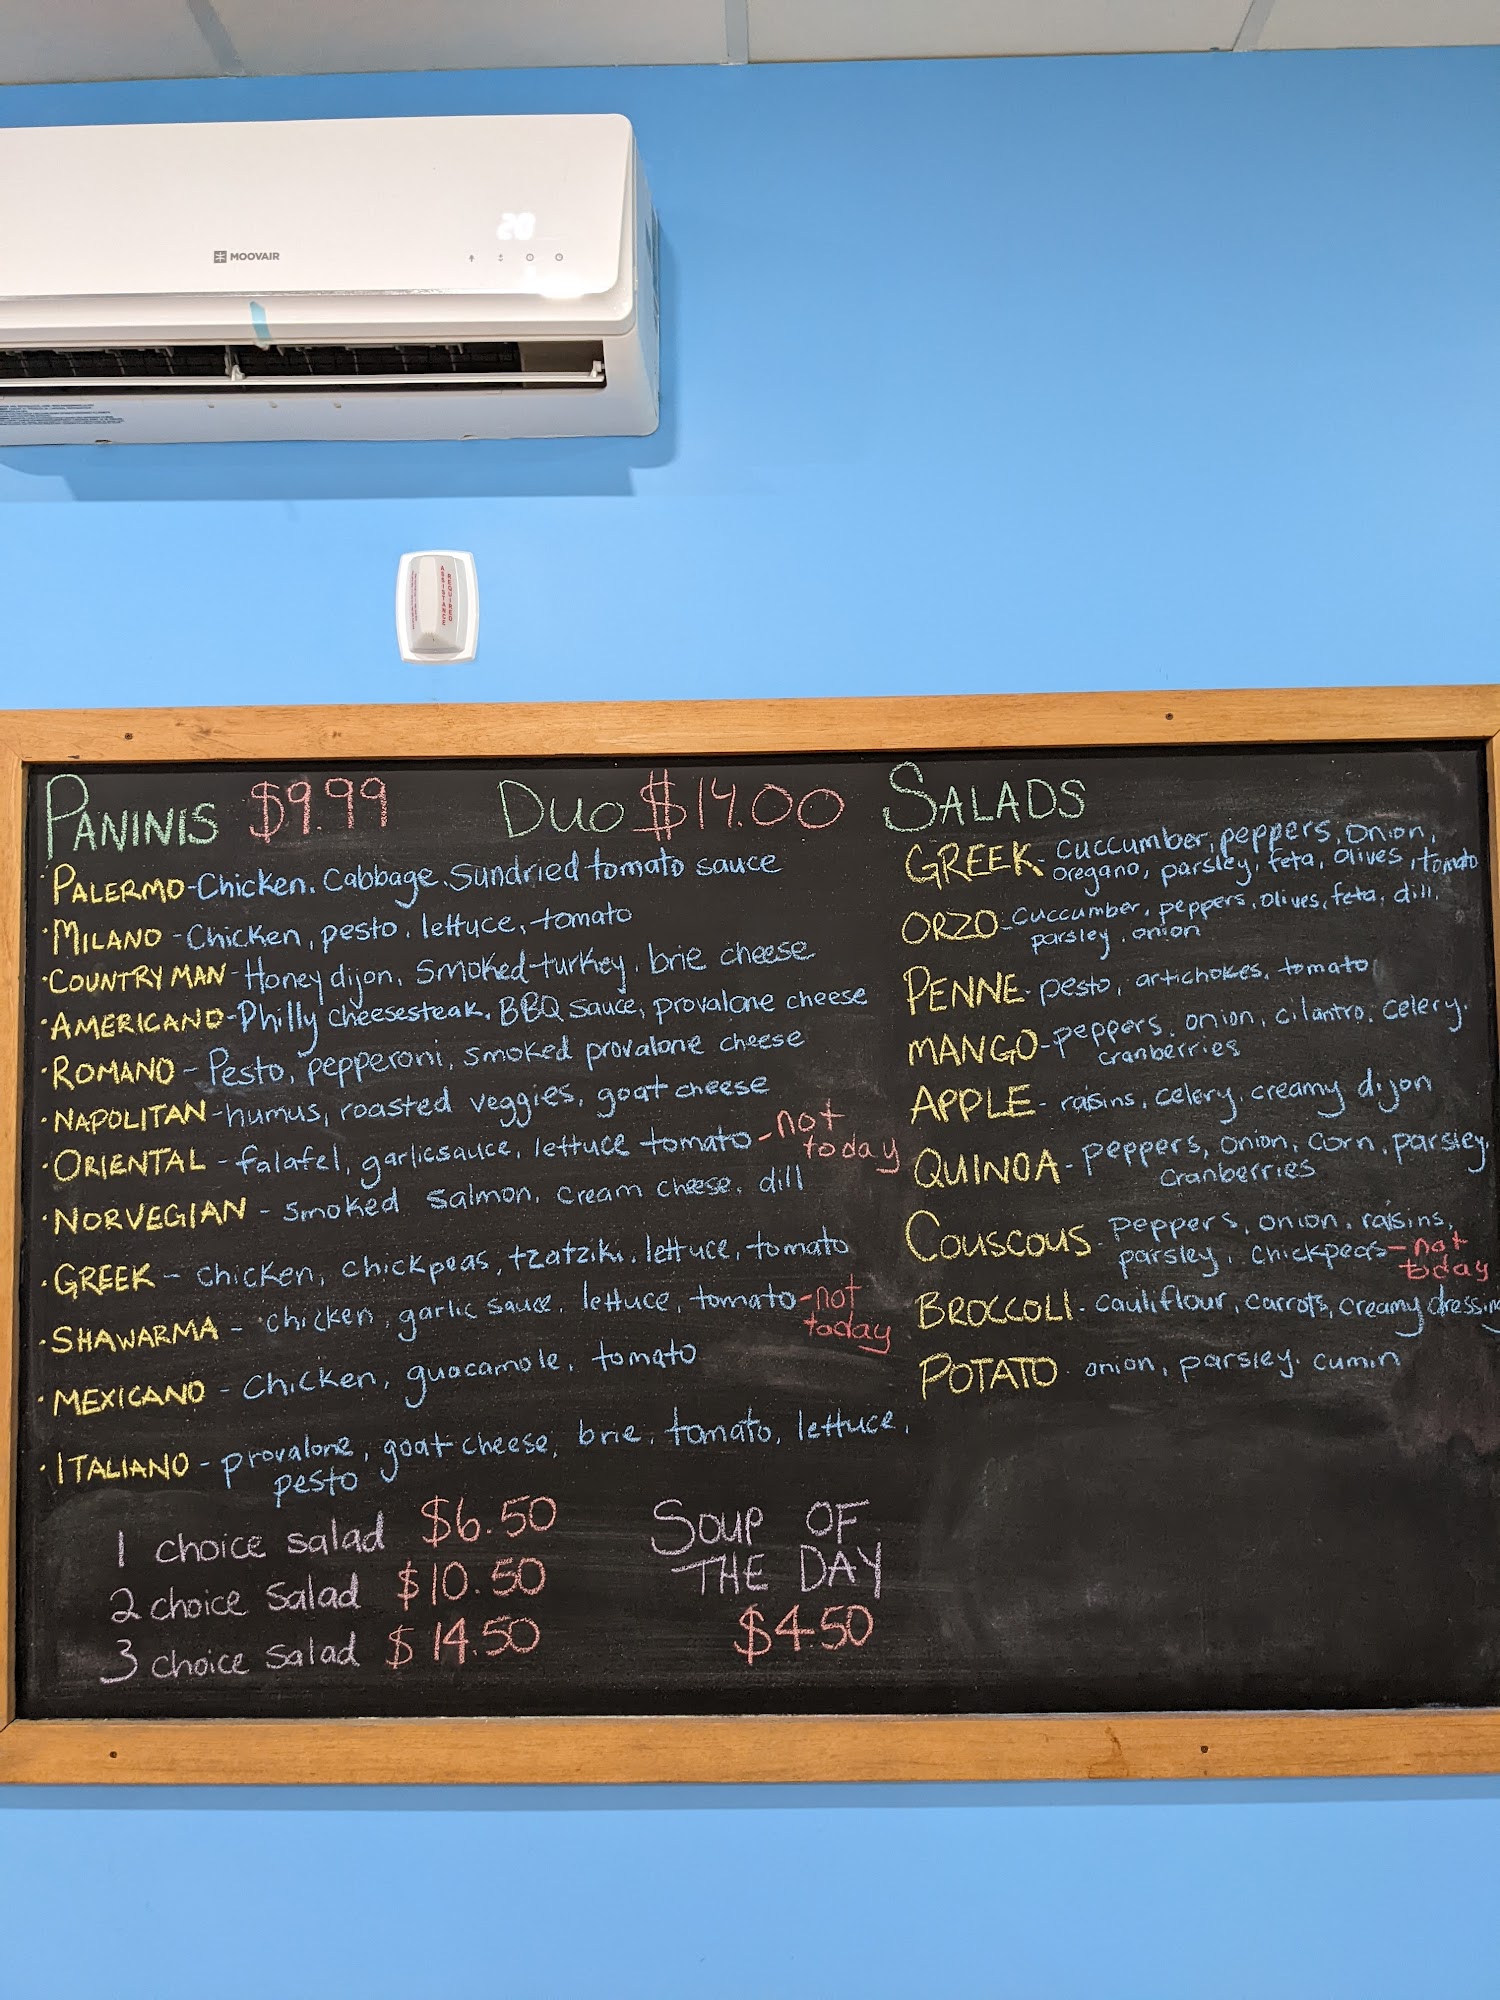 20
MOOVAIR
ASSISTANCE
REQUIRED
PANINIS $9.99
DUO $14.00
·PALERMO-Chicken, Cabbage, Sundried tomato sauce
·MILANO - Chicken, pesto, lettuce, tomato
·COUNTRY MAN - Honey dijon, smoked turkey, brie cheese
·AMERICANO - Philly cheesesteak, BBQ sauce, provalone cheese
·ROMANO - Pesto, pepperoni, smoked provalone cheese
·NAPOLITAN - humus, roasted veggies, goat cheese
·ORIENTAL - falafel, garlic sauce, lettuce tomato - not
today
·NORVEGIAN - smoked salmon, cream cheese, dill
·GREEK - chicken, chickpeas, tzatziki, lettuce, tomato
·SHAWARMA - chicken, garlic sauce, lettuce, tomato - not
today
·MEXICANO - chicken, guacamole, tomato
·ITALIANO - provalone, goat cheese, brie, tomato, lettuce,
pesto
1 choice salad $6.50
2 choice salad $10.50
3 choice salad $14.50
SOUP OF
THE DAY
$4.50
SALADS
GREEK - cuccumber, peppers, onion,
oregano, parsley, feta, olives, tomato
ORZO - cuccumber, peppers, olives, feta, dill,
parsley, onion
PENNE - pesto, artichokes, tomato
MANGO - peppers, onion, cilantro, celery,
cranberries
APPLE - raisins, celery, creamy dijon
QUINOA - peppers, onion, corn, parsley,
cranberries
COUSCOUS - peppers, onion, raisins,
parsley, chickpeas - not
today
BROCCOLI - cauliflour, carrots, creamy dressing
POTATO - onion, parsley, cumin